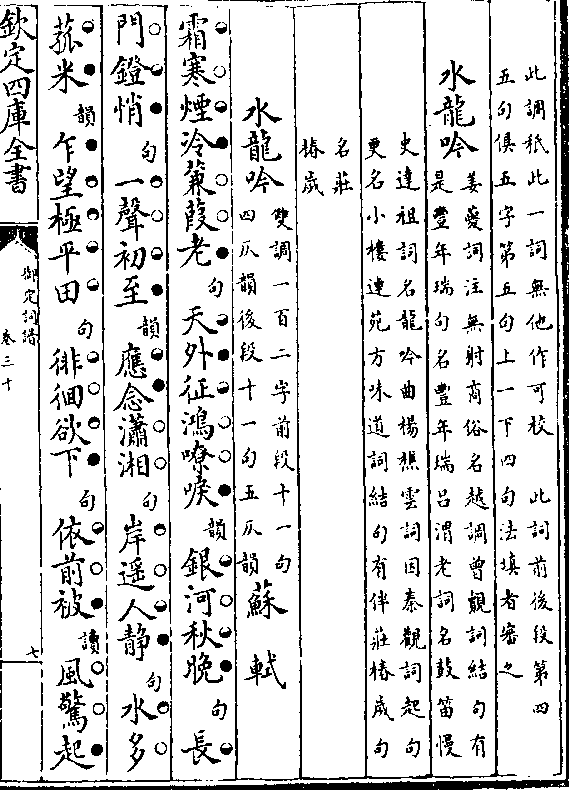 此調秖此一詞無他作可校　此詞前後段第四
五句俱五字第五句上一下四句法填者審之
水龍吟
姜夔詞注無射商俗名越調曾覿詞結句有
是豐年瑞句名豐年瑞呂渭老詞名鼓笛慢
史達祖詞名龍吟曲楊樵雲詞因秦觀詞起句
更名小樓連苑方味道詞結句有伴莊椿歲句
名莊
椿歲
水龍吟
雙調一百二字前段十一句
四仄韻後段十一句五仄韻
蘇軾
霜寒煙冷蒹葭老句天外征鴻嘹唳韻銀河秋晚句長
門鐙悄句一聲初至韻應念瀟湘句岸遥人静句水多
菰米韻乍望極平田句徘徊欲下句依前被讀風驚起
欽定四庫全書
御定詞譜
卷三十
七